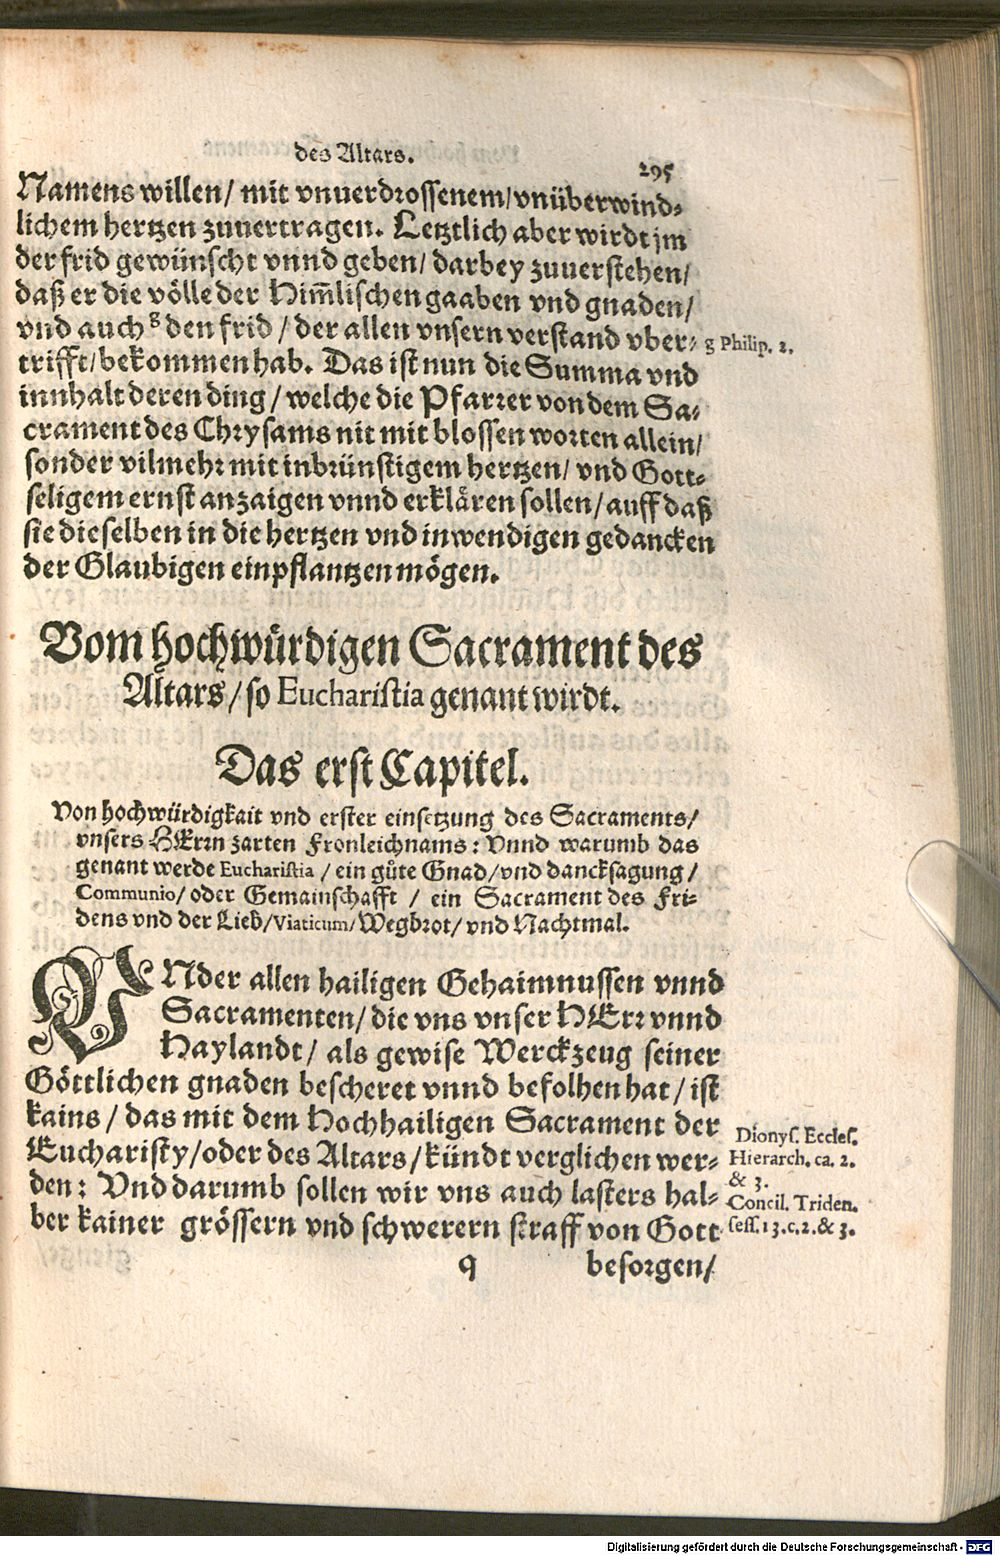 des Altars.
295
Namens willen/ mit vnuerdrossenem/ vnüberwind-
lichem hertzen zuuertragen. Letztlich aber wirdt jm
der frid gewünscht vnnd geben/ darbey zuuerstehen/
daß er die völle der Him̃lischen gaaben vnd gnaden/
vnd auch g den frid / der allen vnsern verstand vber-
g Philip. 2.
trifft/ bekommen hab. Das ist nun die Summa vnd
innhalt deren ding / welche die Pfarrer von dem Sa-
crament des Chrysams nit mit blossen worten allein/
sonder vilmehr mit inbrünstigem hertzen/ vnd Gott-
seligem ernst anzaigen vnnd erklären sollen/ auff daß
sie dieselben in die hertzen vnd inwendigen gedancken
der Glaubigen einpflantzen mögen.
Vom hochwürdigen Sacrament des
Altars/ so Eucharistia genant wirdt.
Das erst Capitel.
Von hochwürdigkait vnd erster einsetzung des Sacraments/
vnsers HErrn zarten Fronleichnams: Vnnd warumb das
genant werde Eucharistia / ein güte Gnad/ vnd dancksagung /
Communio/ oder Gemainschafft / ein Sacrament des Fri-
dens vnd der Lieb/ Viaticum/ Wegbrot/ vnd Nachtmal.
VNder allen hailigen Gehaimnussen vnnd
Sacramenten/ die vns vnser HErr vnnd
Haylandt/ als gewise Werckzeug seiner
Göttlichen gnaden bescheret vnnd befolhen hat / ist
kains / das mit dem Hochhailigen Sacrament der
Eucharisty/ oder des Altars/ kündt verglichen wer-
den: Vnd darumb sollen wir vns auch lasters hal-
ber kainer grössern vnd schwerern straff von Gott
Dionys. Eccles.
Hierarch. ca. 2.
& 3.
Concil. Triden.
sess. 13. c. 2. & 3.
q
besorgen/
Digitalisierung gefördert durch die Deutsche Forschungsgemeinschaft - DFG